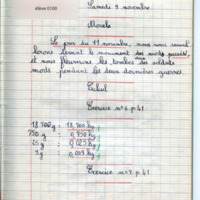 élève 0100
Samedi 9 novembre
Morale
Le jour du 11 novembre, nous nous rassem
blerons devant le monument des morts
et nous fleurirons les tombes des soldats
morts pendant les deux dernières guerres.
Calcul
Exercice n°6 p 41
18 700g = 18,700 kg
750 g = 0,750 kg
25 g = 0,025 kg
9 g = 0,009 kg
Exercice n°7 p. 41